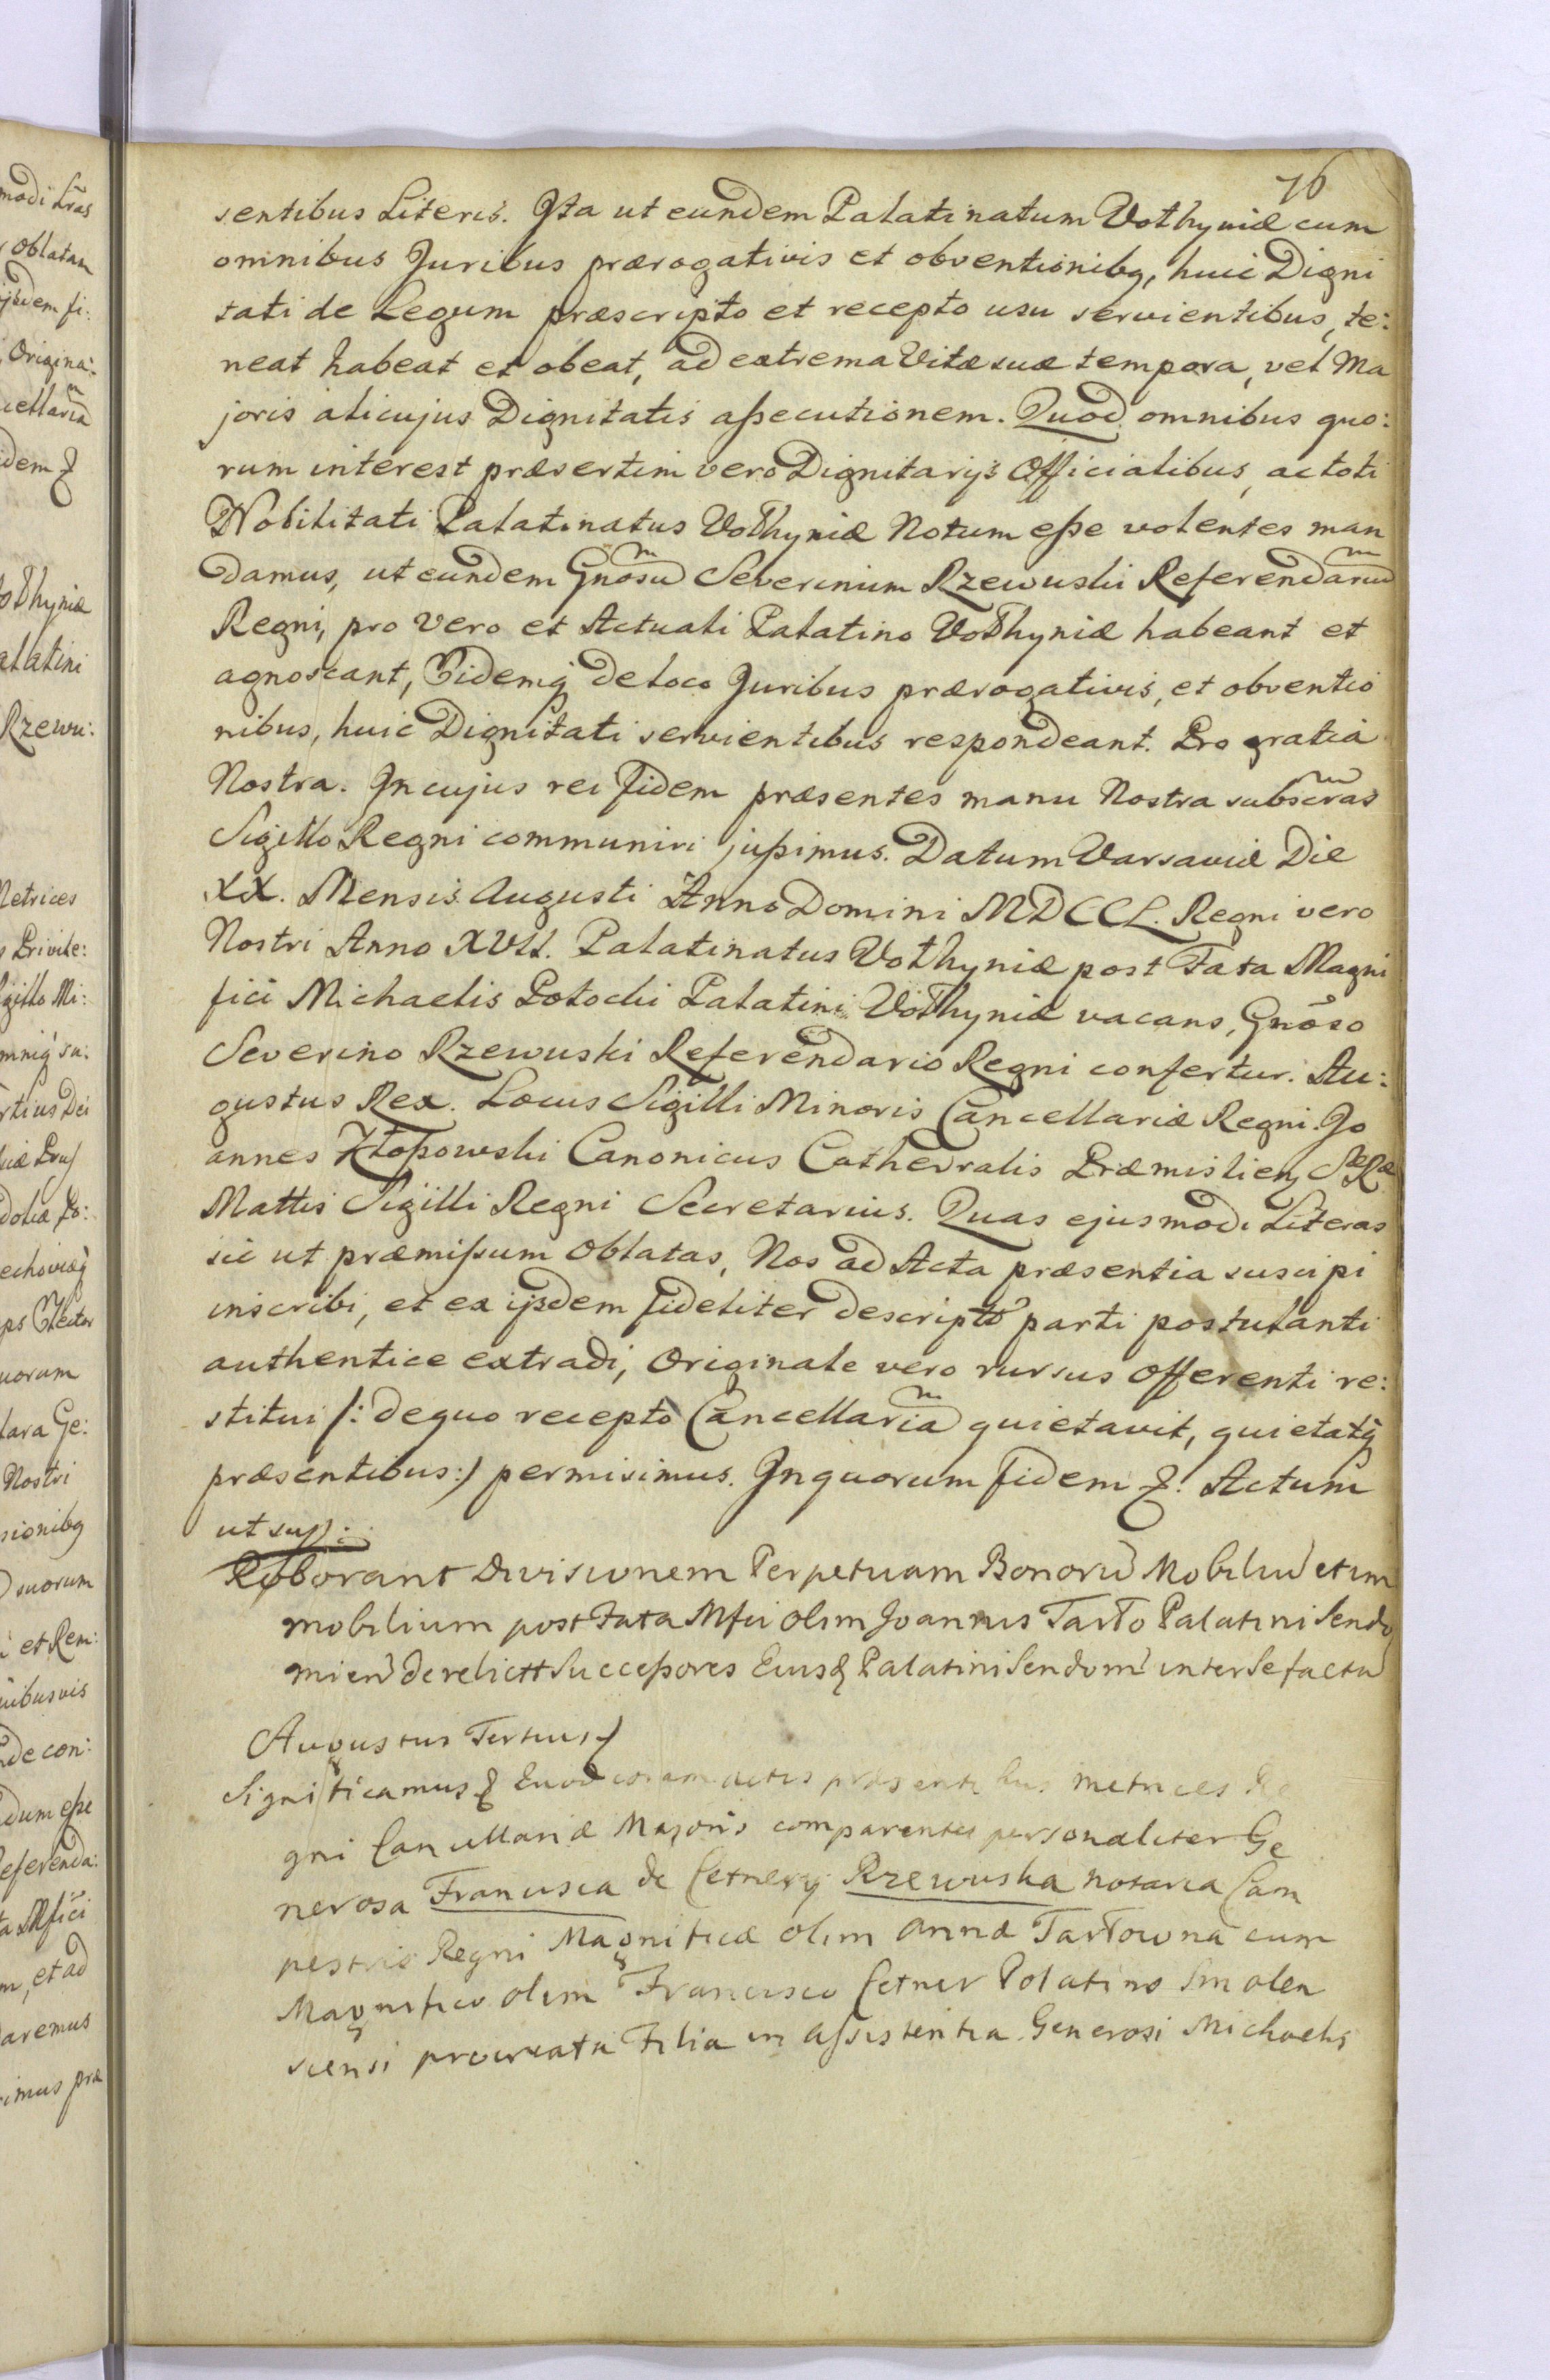 76
sentibus Literis. Ita ut eundem Palatinatum Volhyniæ cum
omnibus Juribus prærogativis et obventionibq, huic Digni
tati de Legum præscripto et recepto usu servientibus, te:
neat habeat et obeat, ad extrema Vitæ suæ tempora, vel Ma
joris alicujus Dignitatis aßecutionem. Quod omnibus quo:
rum interest præsertim vero Dignitarijs Officialibus, ac toti
Nobilitati Palatinatus Volhyniæ Notum eße volentes man
damus, ut eundem Gnosũ Severinum Rzewuski Referendariũ
Regni, pro vero et Actuali Palatino Volhyniæ habeant et
agnoscant, Eidemq de loco Juribus prærogativis, et obventio
nibus, huic Dignitati servientibus respondeant. Pro gratia
Nostra. In cujus rei fidem præsentes manu Nostra subscras
Sigillo Regni communiri jußimus. Datum Varsaviæ Die
XX. Mensis Augusti Anno Domini MDCCL. Regni vero
Nostri Anno XVII. Palatinatus Volhyniæ post Fata Magni
fici Michaelis Potocki Palatini Volhyniæ vacans, Gnõso
Severino Rzewuski Referendario Regni confertur. Au:
gustus Rex. Locus Sigilli Minoris Cancellariæ Regni. Jo
annes Kłoßowski Canonicus Cathedralis Præmislien, SæRæ
Mattis Sigilli Regni Secretarius. Quas ejusmodi Literas
sic ut præmißum oblatas, Nos ad Acta præsentia suscipi
inscribi, et ex ijsdem fideliter descripto parti postulanti
authentice extradi, Originale vero rursus Offerenti re:
stitui /: de quo recepto Cancellariã quietavit, quietatq
præsentibus :/ permisimus. In quorum fidem &. Actum
ut sup.
Roborant Divisionem Perpetuam Bonorũ Mobiliũ et im
mobilium post Fata Mfici olim Joannis Tarło Palatini Sendo
mien derelictt Succeßores Eiusd Palatini Sendom inter Se factã
Augustus Tertius
Significamus & Quod coram actis præsentibus Metrices Re
gni Cancellariæ Majoris comparentes personaliter Ge
nerosa Francisca de Cetnery Rzewuska Notaria Cam
pestris Regni Magnificæ olim Annæ Tarłowna cum
Magnifico olim Francisco Cetner Palatino Smolen
scensi procreata Filia in aßistentia Generosi Michaelis